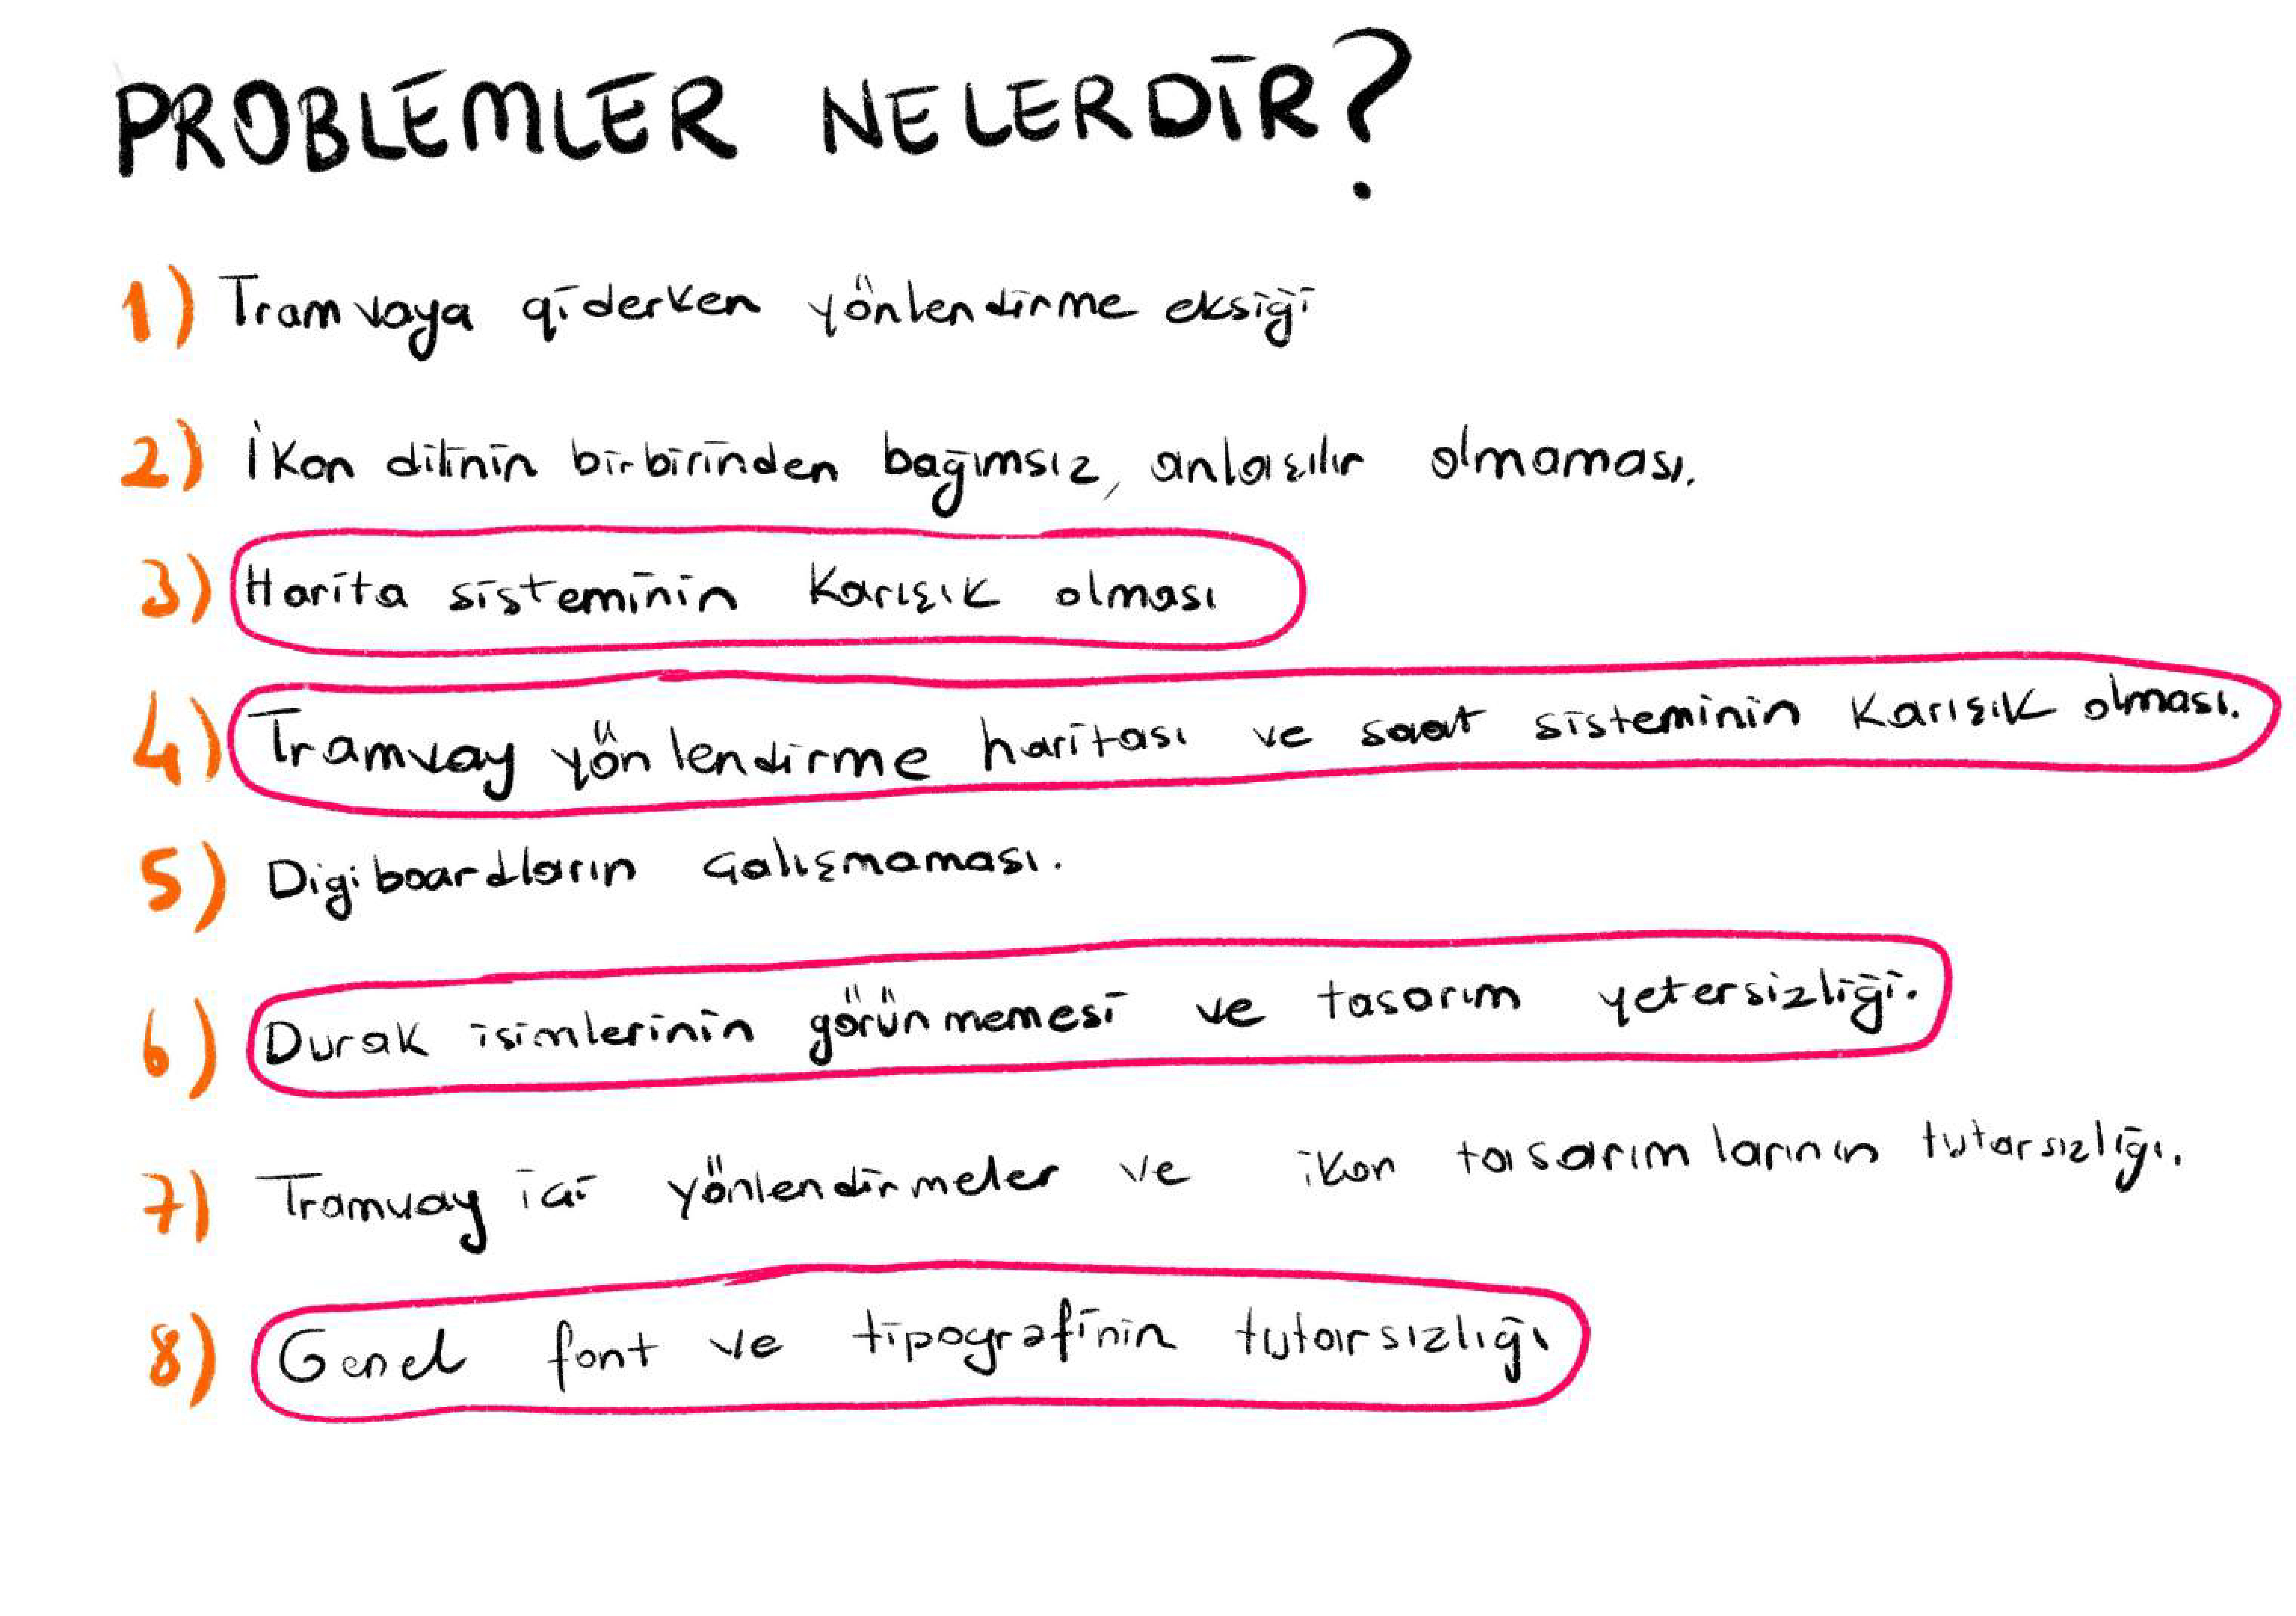 PROBLEMLER NELERDİR?
1) Tramvaya giderken yönlendirme eksiği
2) İkon dilinin birbirinden bağımsız, anlaşılır olmaması.
3) Harita sisteminin karışık olması
4) Tramvay yönlendirme haritası ve saat sisteminin karışık olması.
5) Digiboardların çalışmaması.
6) Durak isimlerinin görünmemesi ve tasarım yetersizliği.
7) Tramvay içi yönlendirmeler ve ikon tasarımlarının tutarsızlığı.
8) Genel font ve tipografinin tutarsızlığı